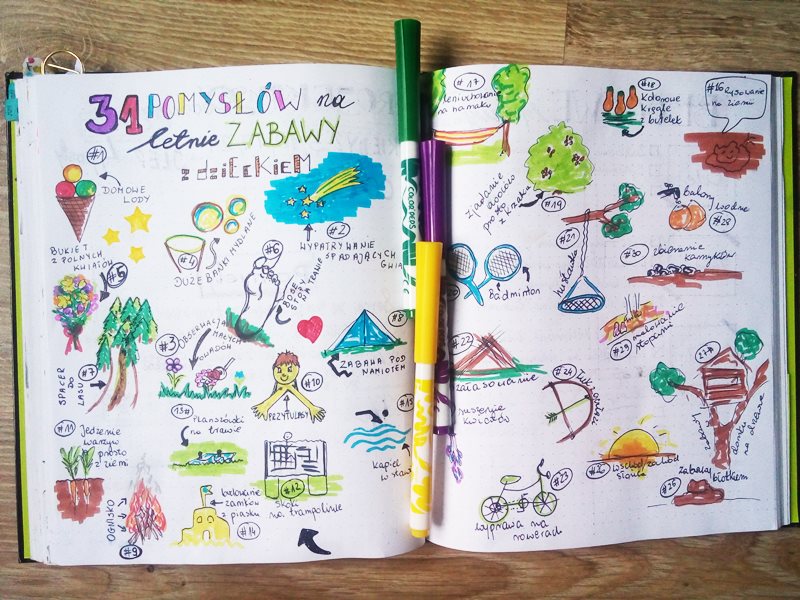 31 POMYSŁÓW na
letnie ZABAWY
z dziEckiEM
#1
DOMOWE
LODY
#2
WYPATRYWANIE
SPADAJĄCYCH
#4
DUŻE BAŃKI MYDLANE
BUKIET
Z POLNYCH
KWIATÓW
#5
#6
BOSO
PO TRAWIE
#3
OBSERWACJA
MAŁYCH
OWADÓW
#7
SPACER
DO
LASU
#8
ZABAWA POD
NAMIOTEM
#10
PRZYTULASY
#11
Jedzenie
warzyw
prosto
z ziemi
13#
Planszówki
na trawie
#12
Skoki
na trampolinie
Kąpiel
OGNISKO
#9
budowanie
zamków
z piasku
#14
COLORPEPS
#17
na hamaku
#18
Kolorowe
kręgle
z butelek
#16 rysowanie
na ziemi
zjadanie
z krzaka
#19
#21
huśtawka
balony
wodne
#28
Badminton
#30 zbieranie kamyków
#29 malowanie
stopami
#22
#24
suszenie
kwiatów
27#
domku
na drzewie
#26 wschód/zachód
słońca
#23
wyprawa na
rowerach
zabawy
błotkiem
#25